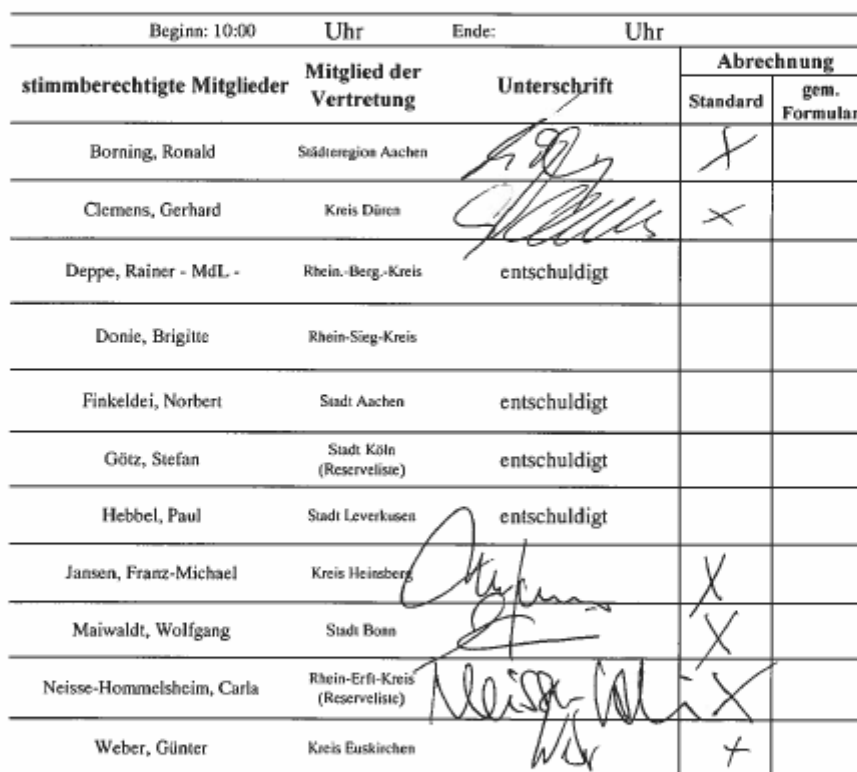 Beginn: 10:00 Uhr Ende: Uhr
stimmberechtigte Mitglieder Mitglied der Vertretung Unterschrift Abrechnung
Standard gem. Formular
Borning, Ronald Städteregion Aachen X
Clemens, Gerhard Kreis Düren X
Deppe, Rainer - MdL - Rhein.-Berg.-Kreis entschuldigt
Donie, Brigitte Rhein-Sieg-Kreis
Finkeldei, Norbert Stadt Aachen entschuldigt
Götz, Stefan Stadt Köln (Reserveliste) entschuldigt
Hebbel, Paul Stadt Leverkusen entschuldigt
Jansen, Franz-Michael Kreis Heinsberg X
Maiwaldt, Wolfgang Stadt Bonn X
Neisse-Hommelsheim, Carla Rhein-Erft-Kreis (Reserveliste) X
Weber, Günter Kreis Euskirchen X